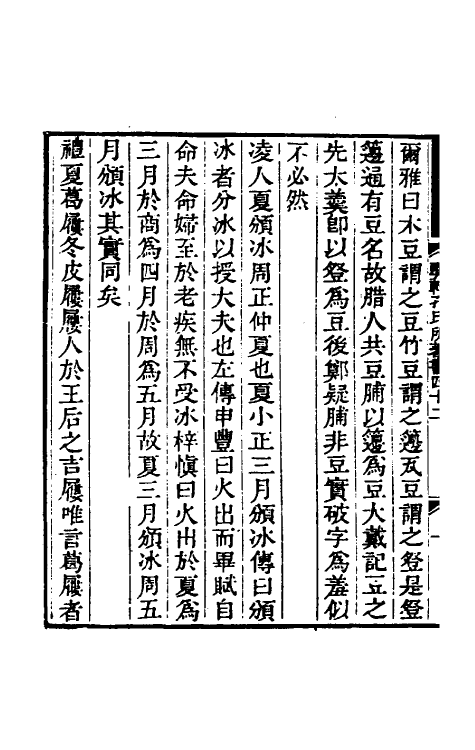 爾雅曰木豆謂之豆竹豆謂之籩瓦豆謂之豋是豋
籩通有豆名故腊人共豆脯以籩為豆大戴記豆之
先大羹卽以豋為豆後鄭疑脯非豆實破字為羞似
不必然
凌人夏頒冰周正仲夏也夏小正三月頒冰傳曰頒
冰者分冰以授大夫也左傳申豐曰火出而畢賦自
命夫命婦至於老疾無不受冰梓愼曰火出於夏為
三月於商為四月於周為五月故夏三月頒冰周五
月頒冰其實同矣
禮夏葛屨冬皮屨屨人於王后之吉屨唯言葛屨者